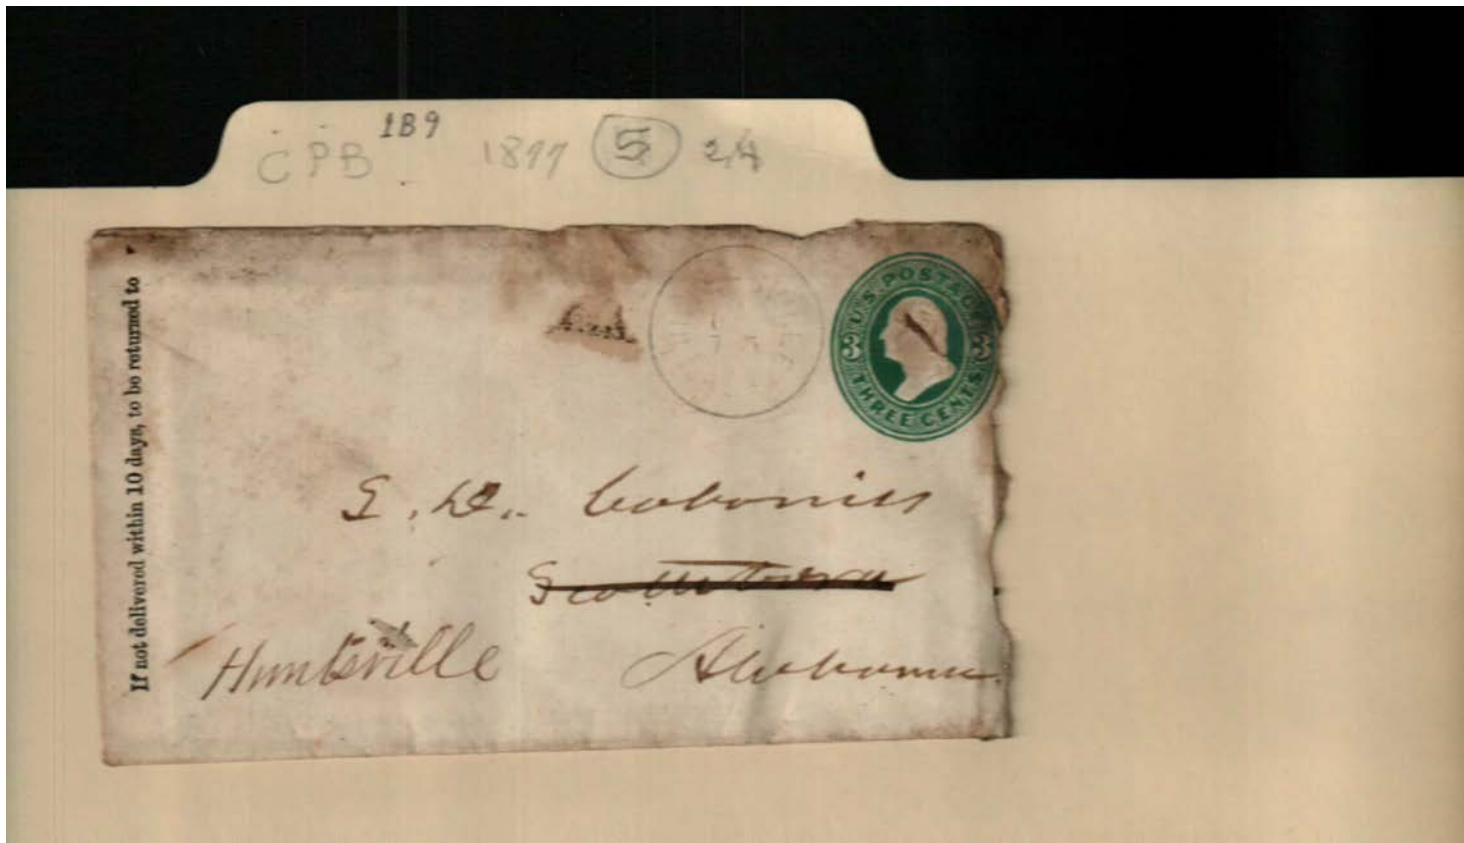 CPB 1B9 1877 5 2/4
If not delivered within 10 days, to be returned to
U.S. POSTAGE
3 3
THREE CENTS
S. D. Cabaniss
Scottsboro
Huntsville Alabama